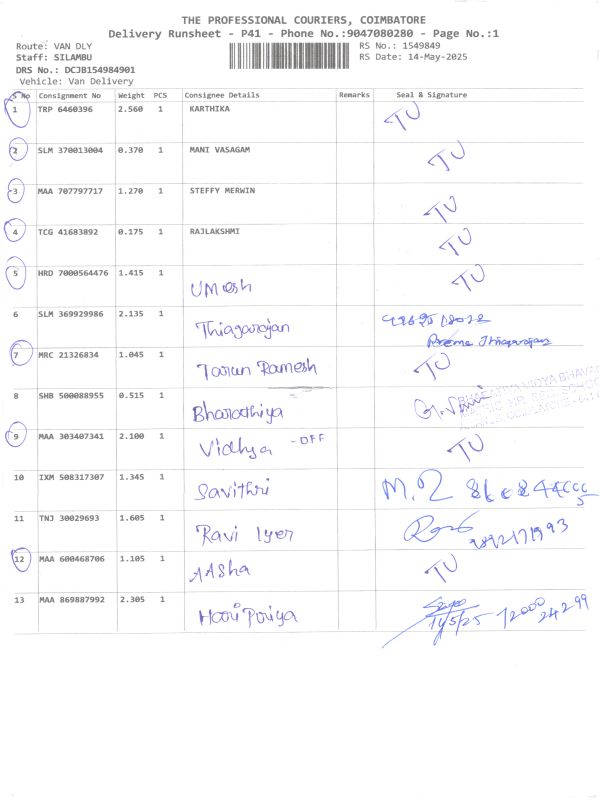 THE PROFESSIONAL COURIERS, COIMBATORE
Delivery Runsheet - P41 - Phone No.:9047080280 - Page No.:1
Route: VAN DLY RS No.: 1549849
Staff: SILAMBU RS Date: 14-May-2025
DRS No.: DCJB154984901
Vehicle: Van Delivery
S No Consignment No Weight PCS Consignee Details Remarks Seal & Signature
1 TRP 6460396 2.560 1 KARTHIKA TU
2 SLM 370013004 0.370 1 MANI VASAGAM TU
3 MAA 707797717 1.270 1 STEFFY MERWIN TU
4 TCG 41683892 0.175 1 RAJLAKSHMI TU
5 HRD 7000564476 1.415 1 UMesh TU
6 SLM 369929986 2.135 1 Thiagarajan
Thiagarajan
7 MRC 21326834 1.045 1 Tarun Ramesh TU
8 SHB 500088955 0.515 1 Bharathiya
9 MAA 303407341 2.100 1 Vidhya - OFF TU
10 IXM 508317307 1.345 1 Savithri
11 TNJ 30029693 1.605 1 Ravi Iyer
12 MAA 600468706 1.105 1 AAsha TU
13 MAA 869887992 2.305 1 Hari Priya